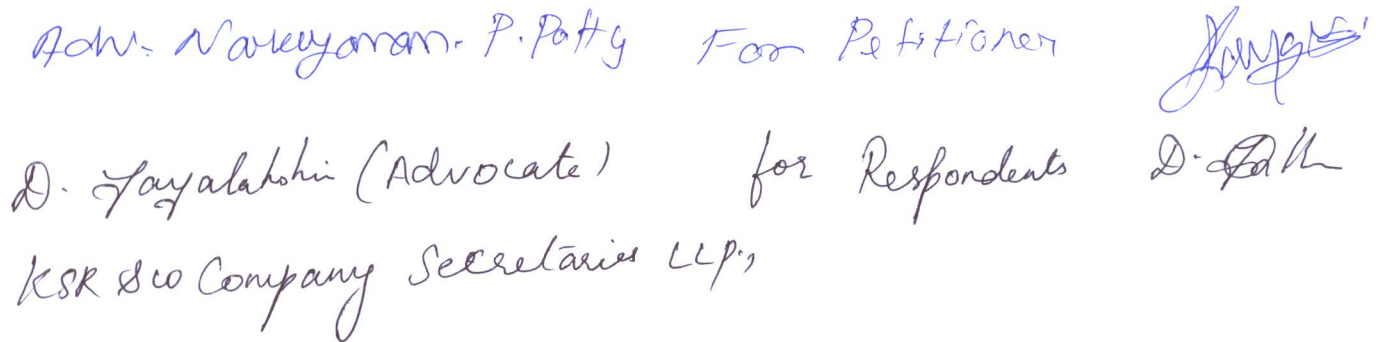 Adv. Narayanan. P. Potty For Petitioner
D. Jayalakshmi (Advocate) for Respondents D.
KSR & Co Company Secretaries LLP.,